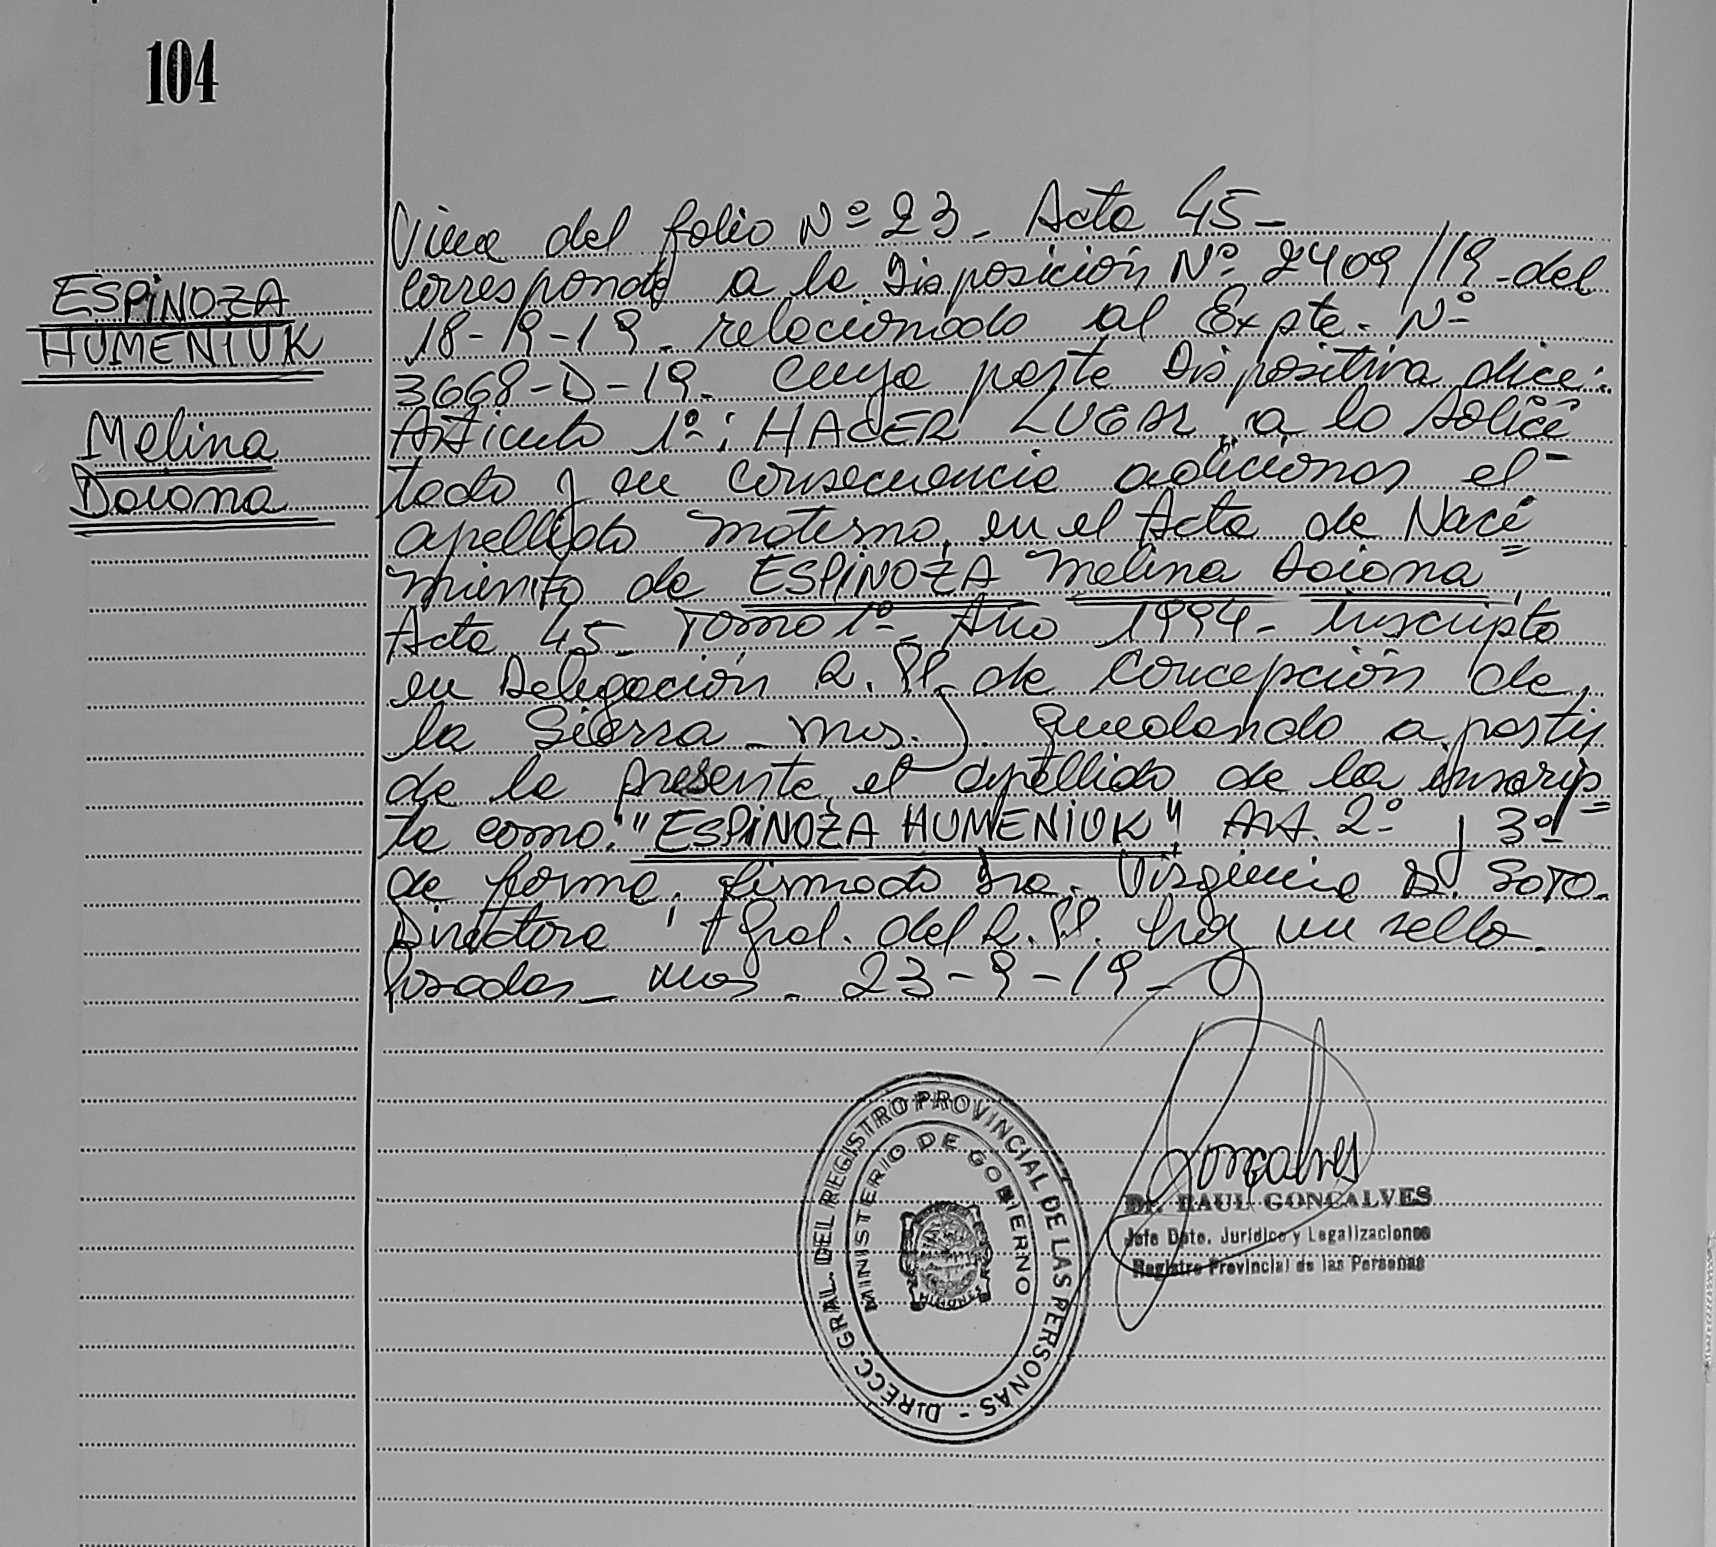 104
ESPINOZA
HUMENIUK
Melina
Daiana
Viene del folio Nº 23 - Acta 45 -
corresponde a la Disposición Nº 2409/19 - del
18-9-19 - relacionado al Expte. Nº
3668-D-19 - Cuya parte Dispositiva dice:
Artículo 1º: HACER LUGAR a lo Solici
tado y en consecuencia adicionar el
apellido materno, en el Acta de Naci
miento de ESPINOZA Melina Daiana,
Acta 45 - Tomo 1º - Año 1994 - Inscripta
en Delegación R. PP. de Concepción de
la Sierra - Mnes.) quedando a partir
de la presente el apellido de la inscrip
ta como: "ESPINOZA HUMENIUK" Art. 2º y 3º
de forma, firmado Dra. Virginia Soto.
Directora Gral. del R. PP. hay un sello.
Posadas - Mnes - 23-9-19 -
Goncalves
Dr. RAUL GONCALVES
Jefe Dpto. Jurídico y Legalizaciones
Registro Provincial de las Personas
DIRECC. GRAL. DEL REGISTRO PROVINCIAL DE LAS PERSONAS -
MINISTERIO DE GOBIERNO